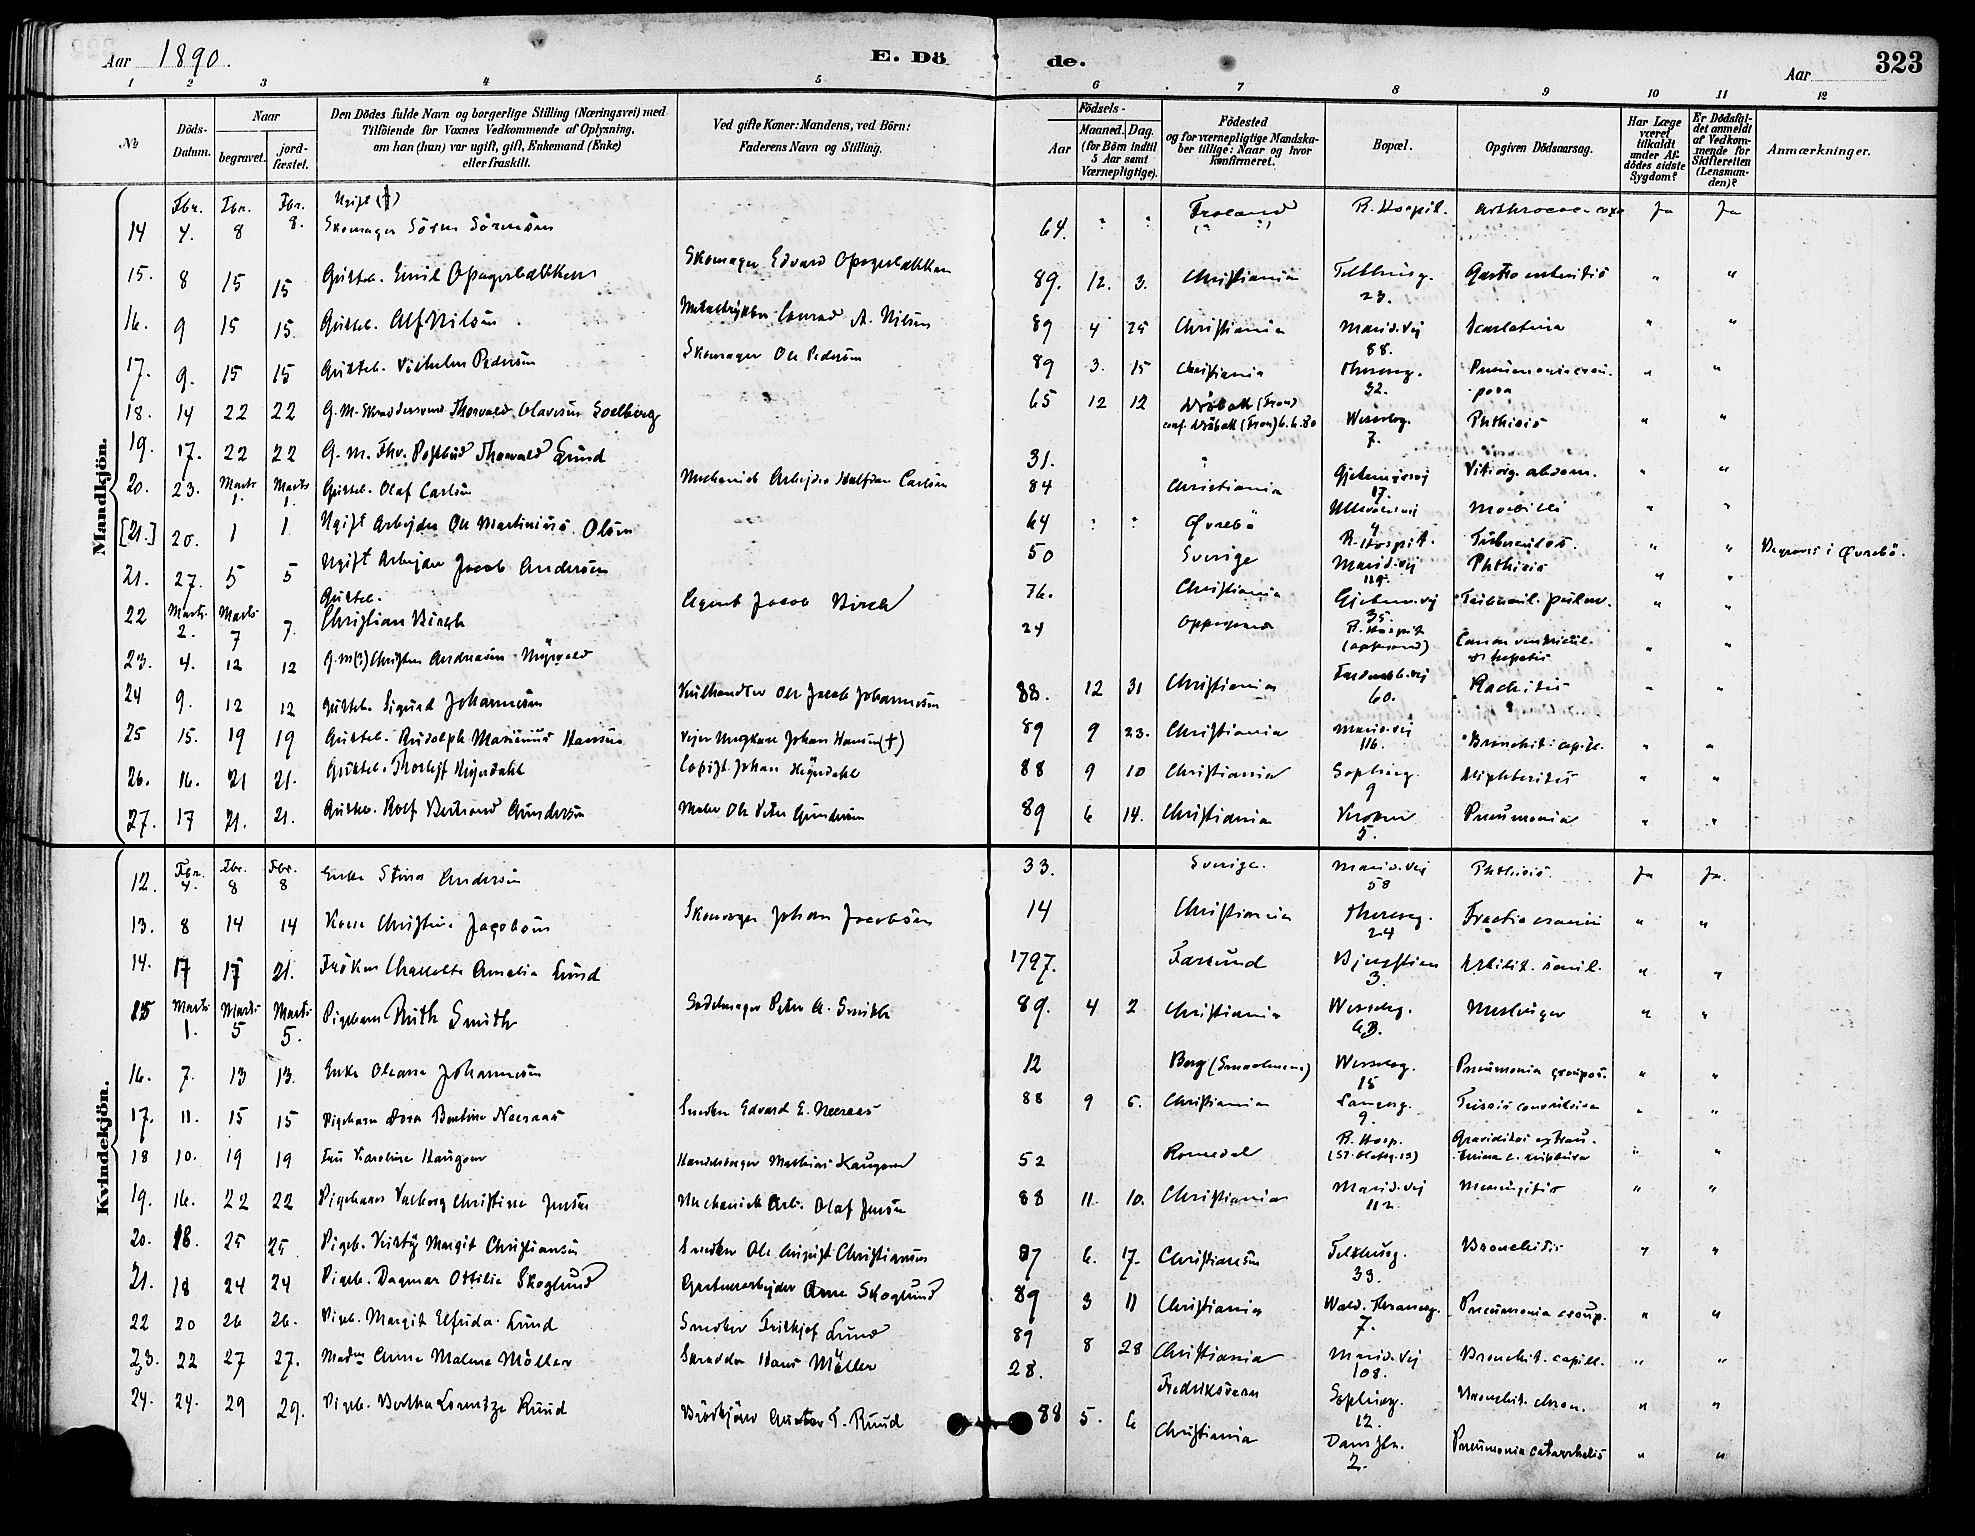 Aar 1890. E. Döde. Aar 323
1 2 3 4 5 6 7 8 9 10 11 12
No Döds-Datum. Naar begravet. jord-fæstet. Den Dödes fulde Navn og borgerlige Stilling (Næringsvei) med Tilföiende for Voxnes Vedkommende af Oplysning, om han (hun) var ugift, gift, Enkemand (Enke) eller fraskilt. Ved gifte Koner: Mandens, ved Börn: Faderens Navn og Stilling. Födsels- Aar Maaned. Dag. (for Börn indtil 5 Aar samt Værnepligtige). Födested og for værnepligtige Mandskaber tillige: Naar og hvor konfirmeret. Bopæl. Opgiven Dödsaarsag. Har Læge været tilkaldt under Afdödes sidste Sygdom? Er Dödsfaldet anmeldt af Vedkommende for Skifteretten (Lensmanden)? Anmærkninger.
Mandkjön.
14 Fbr. 4. Fbr. 8 Fbr. 8. Ugift (†) Skomager Sören Sörensen 64. " " Froland R. Hospit. Ja Ja
15. 8 15 15 Gutteb. Emil Opagerbakken Skomager Edvard Opagerbakken 89. 12. 3. Christiania 23. Gastroenteritis " "
16. 9 15 15. Gutteb. Alf Nilsen Conrad A. Nilsen 89 4 25 Christiania Marid.vej 88. Scarlatina " "
17. 9. 15 15 Gutteb. Vilhelm Pedersen Skomager Ole Pedersen 89 3. 15 Christiania 32. Pneumonia " "
18. 14 22 22 G. M. Thorvald Olavesen Soelberg 65 12 12 Dröbak (Fron) conf. Dröbak (Fron) 6.6.80 7. Phthisis " "
19. 17. 22 22 G. M. Postbud Thorvald Lund 31.
20. 23. Marts 1. Marts 1. Gutteb. Olaf Carlsen Mechanisk Arbejder Halfdan Carlsen 84 Christiania 17. " "
[21.] 20. 1 1. Ugift Arbejder Ole Martinius Olsen 64 : : Øvrebö R. Hospit. Tuberculos. " " Begraves i Øvrebö.
21. 27. 5 5 Ugift Arbejder Jacob Andersen 50 Sverige Marid.vej 119. Phthisis " "
22 Marts 2. Marts 7 7. Gutteb. Christian Birch Agent Jacob Birch 76. Christiania 35. " "
23. 4. 12 12 G. M. (?) Christen Andreasen 24 Oppegaard R. Hospit " "
24 9. 12 12 Gutteb. Sigurd Johannesen Ole Jacob Johannesen 88. 12 31 Christiania 60. Rachitis " "
25 15. 19 19 Gutteb. Rudolph Marinius Hansen Johan Hansen (†) 89 9 23. Christiania Marid.vej 116. Bronchit. capill. " "
26. 16. 21 21. Gutteb. Thorleif Höyendahl Copist Johan Höyendahl 88 9 10 Christiania 9 Diphtheritis " "
27. 17 21. 21. Gutteb. Rolf Bertrand Gundersen Maler Ole Peter Gundersen 89 6 14. Christiania 5. Pneumonia " "
Kvindekjön.
12. Fbr. 4. Fbr. 8 Fbr. 8 Enke Stina Andersen 33. Sverige. Marid.vej 58 Phthisis. Ja Ja.
13. 8 14 14 Kone Christine Jacobsen Skomager Johan Jacobsen 14 Christiania 24 Fractio cranii " "
14. 17 17 21. Fröken Charlotte Amalia Lund 1797. Farsund 3. " "
15 Marts 1. Marts 5 Marts 5. Pigebarn Ruth Smith Sadelmager Peter A. Smith 89. 4 2 Christiania 6B. Meslinger " "
16. 7. 13 13. Enke Oleane Johannesen 12 Borg (Smaalenene) 15 Pneumonia croupos. " "
17. 11. 15 15 Pigebarn Dora Bertine Neeraas Snedker Edvard E. Neeraas 88 9 5. Christiania Langesg. 9. Tussis convulsiva " "
18 10. 19 19 Fru Karoline Haugom Mathias Haugom 52 Romedal R. Hosp. (St. Olafsg. 19) Graviditas extrau- " "
19. 16. 22 22 Pigebarn Valborg Christine Jensen Mechanisk Arb. Olaf Jensen 88 11. 10. Christiania Marid.vej 112. Meningitis " "
20. 18. 25 25 Pigeb. Kirsty Margit Christiansen Snedker Ole August Christiansen 87 6. 17. Christiansen 33. Bronchitis " "
21. 18 24 24 Pigeb. Dagmar Ottilia Skoglund Gartnerarbejder Arne Skoglund 89 3 11 Christiania Wald. Thranesg. 7. Pneumonia croup. " "
22 20 26 26. Pigeb. Margit Elfrida Lund Snedker Fritkjof Lund 89 8 28 Christiania Marid.vej 108. Bronchit. capill. " "
23. 22 27 27. Mad. Anna Malene Möller Skrædder Hans Möller 28. Fredriksværn 12. Bronchit. chron. " "
24. 24. 29 29. Pigeb. Bertha Lorentze Ruud Gustav L. Ruud 88 5. 6 Christiania 2. Pneumonia catarrhalis " "